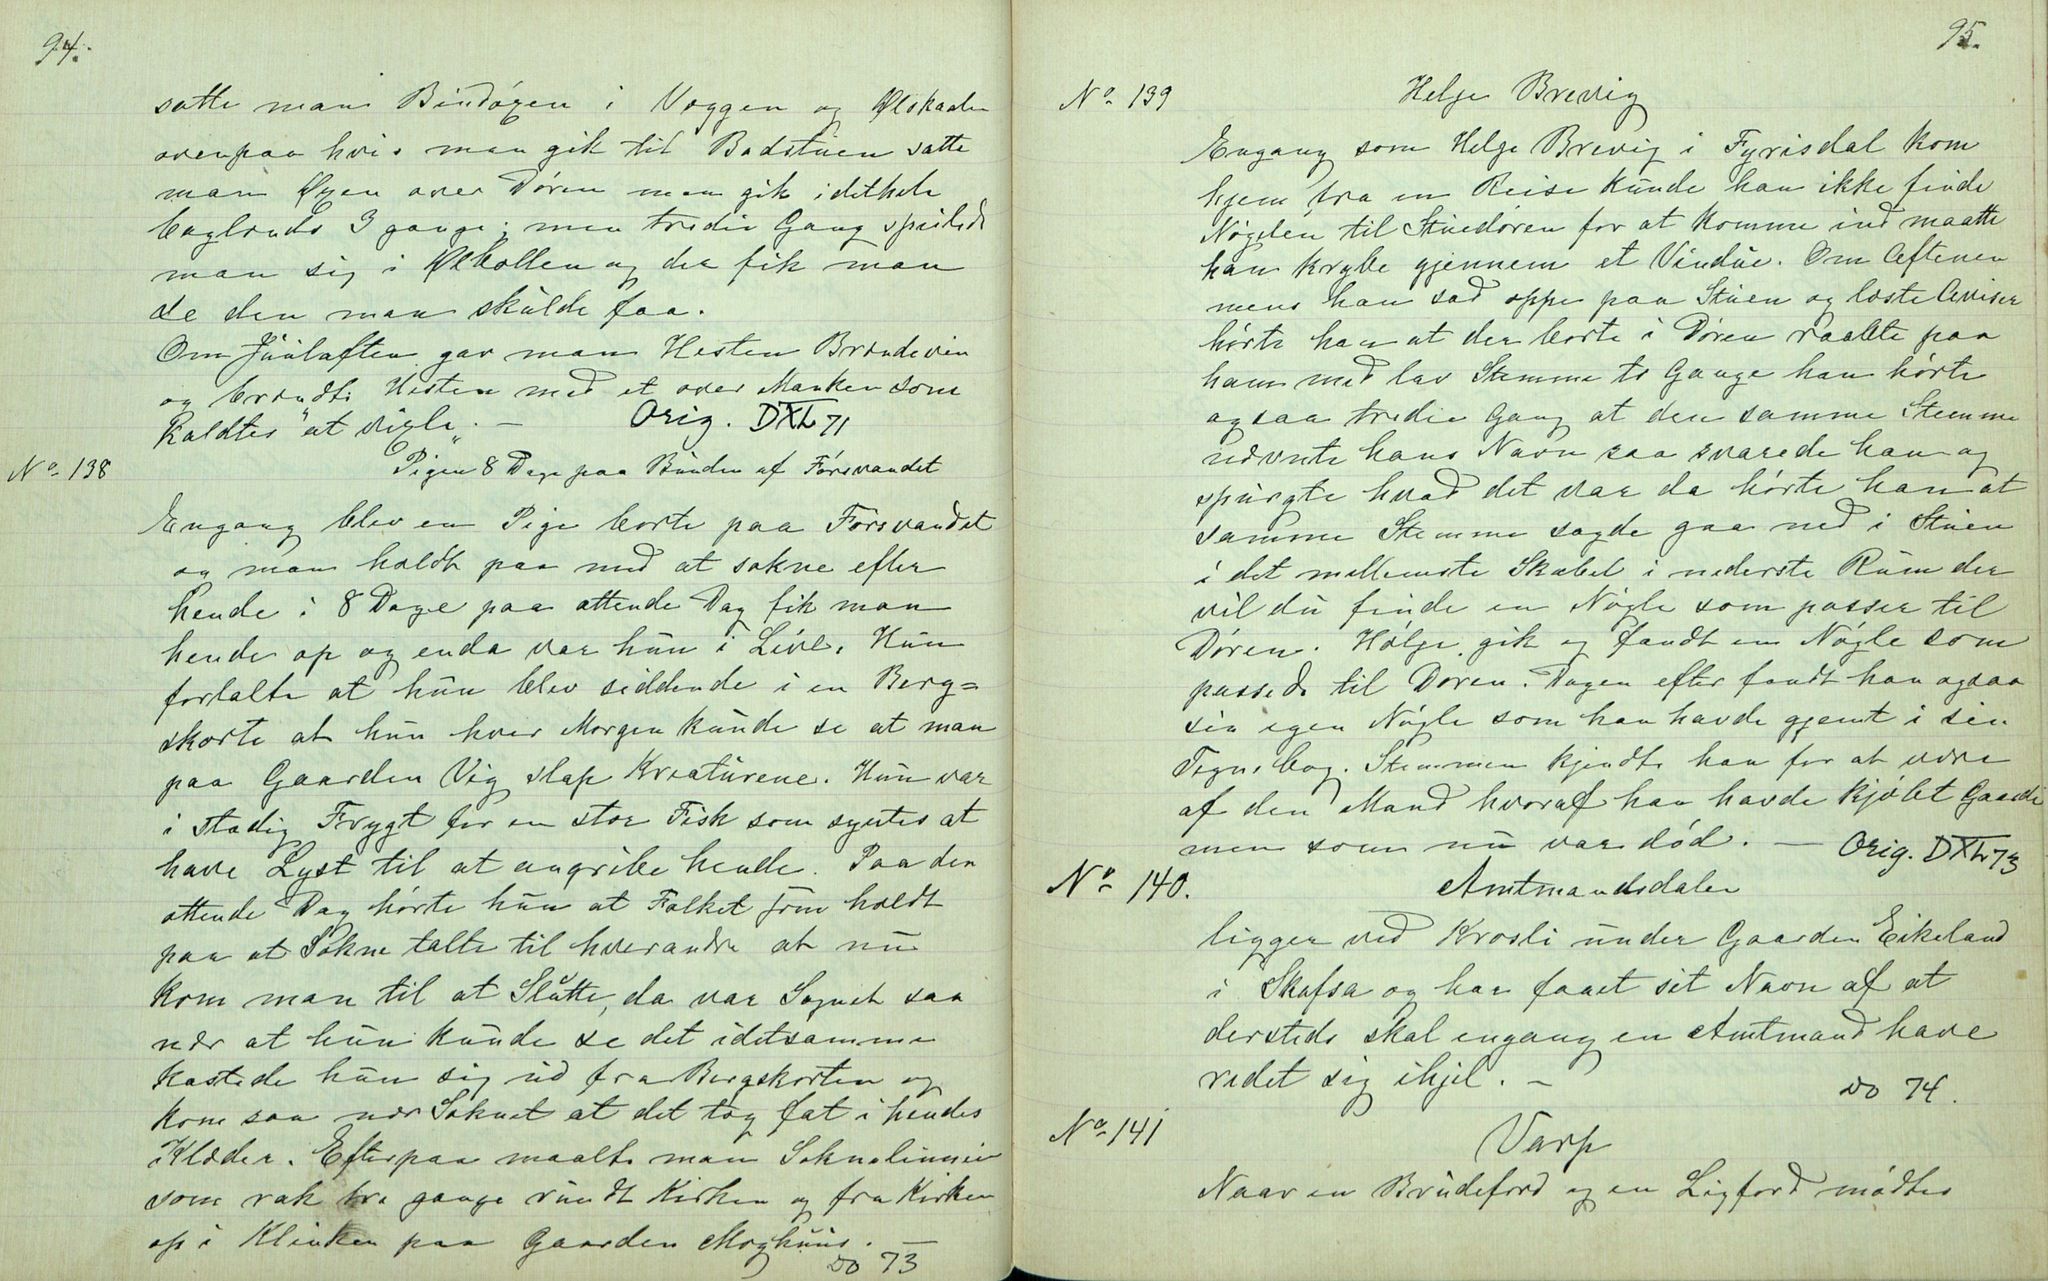 94.
satte man Bindøxen i Væggen og Ølskaalen
ovenpaa hvis man gik til Badstuen satte
man Øxen over Døren man gik idethele
baglends 3 gange; men tredie Gang speilede
man sig i Ølbollen og der fik man
se den man skulde faa.
Om Juulaften gav man Hesten Brændevin
og brændte Hesten med et over Manken som
kaldtes "at sigle". — Orig. DXL 71
No 138 Pigen 8 Dage paa Bunden af Førsvandet
Engang blev en Pige borte paa Førsvandet
og man holdt paa med at sokne efter
hende i 8 Dage paa ottende Dag fik man
hende op og enda var hun i Live. Hun
fortalte at hun blev siddende i en Berg=
skorte at hun hver Morgen kunde se at man
paa Gaarden Vig slap Kreaturene. Hun var
i stadig Frygt for en stor Fisk som syntes at
have Lyst til at angribe hende. Paa den
ottende Dag hørte hun at Folket som holdt
paa at Sokne talte til hverandre at nu
kom man til at Slutte, da var Sognet saa
nær at hun kunde se det idetsamme
kastede hun sig ud fra Bergskorten og
kom saa nær Soknet at det tog fat i hendes
Klæder. Efterpaa maalte man Soknelinnen
som rak tre gange rundt Kirken og fra Kirken
op i Klinken paa Gaarden Moghuus. —
do 73
95.
No 139 Helge Brevig
Engang som Helge Brevig i Fyrisdal kom
hjem fra en Reise kunde han ikke finde
Nøgelen til Stuedøren for at komme ind maatte
han krybe gjennem et Vindue. Om Aftenen
mens han sad oppe paa Stuen og læste Aviser
hørte han at der borte i Døren raabte paa
ham med lav Stemme to Gange han hørte
ogsaa tredie Gang at den samme Stemme
nævnte hans Navn saa svarede han og
spurgte hvad det var da hørte han at
samme Stemme sagde gaa ned i Stuen
i det mellemste Skabet i nederste Rum der
vil du finde en Nøgle som passer til
Døren. Helge gik og fandt en Nøgle som
passede til Døren. Dagen efter fandt han ogsaa
sin egen Nøgle som han havde gjemt i sin
Tegnebog. Stemmen kjendte han for at være
af den Mand hvoraf han havde kjøbt Gaarden
men som nu var død. — Orig. DXL 73
No 140. Amtmandsdalen
ligger ved Krosli under Gaarden Eikeland
i Skafsa og har faaet sit Navn af at
dersteds skal engang en Amtmand have
redet sig ihjel. — do 74.
No 141 Varp
Naar en Brudeferd og en Ligferd mødtes